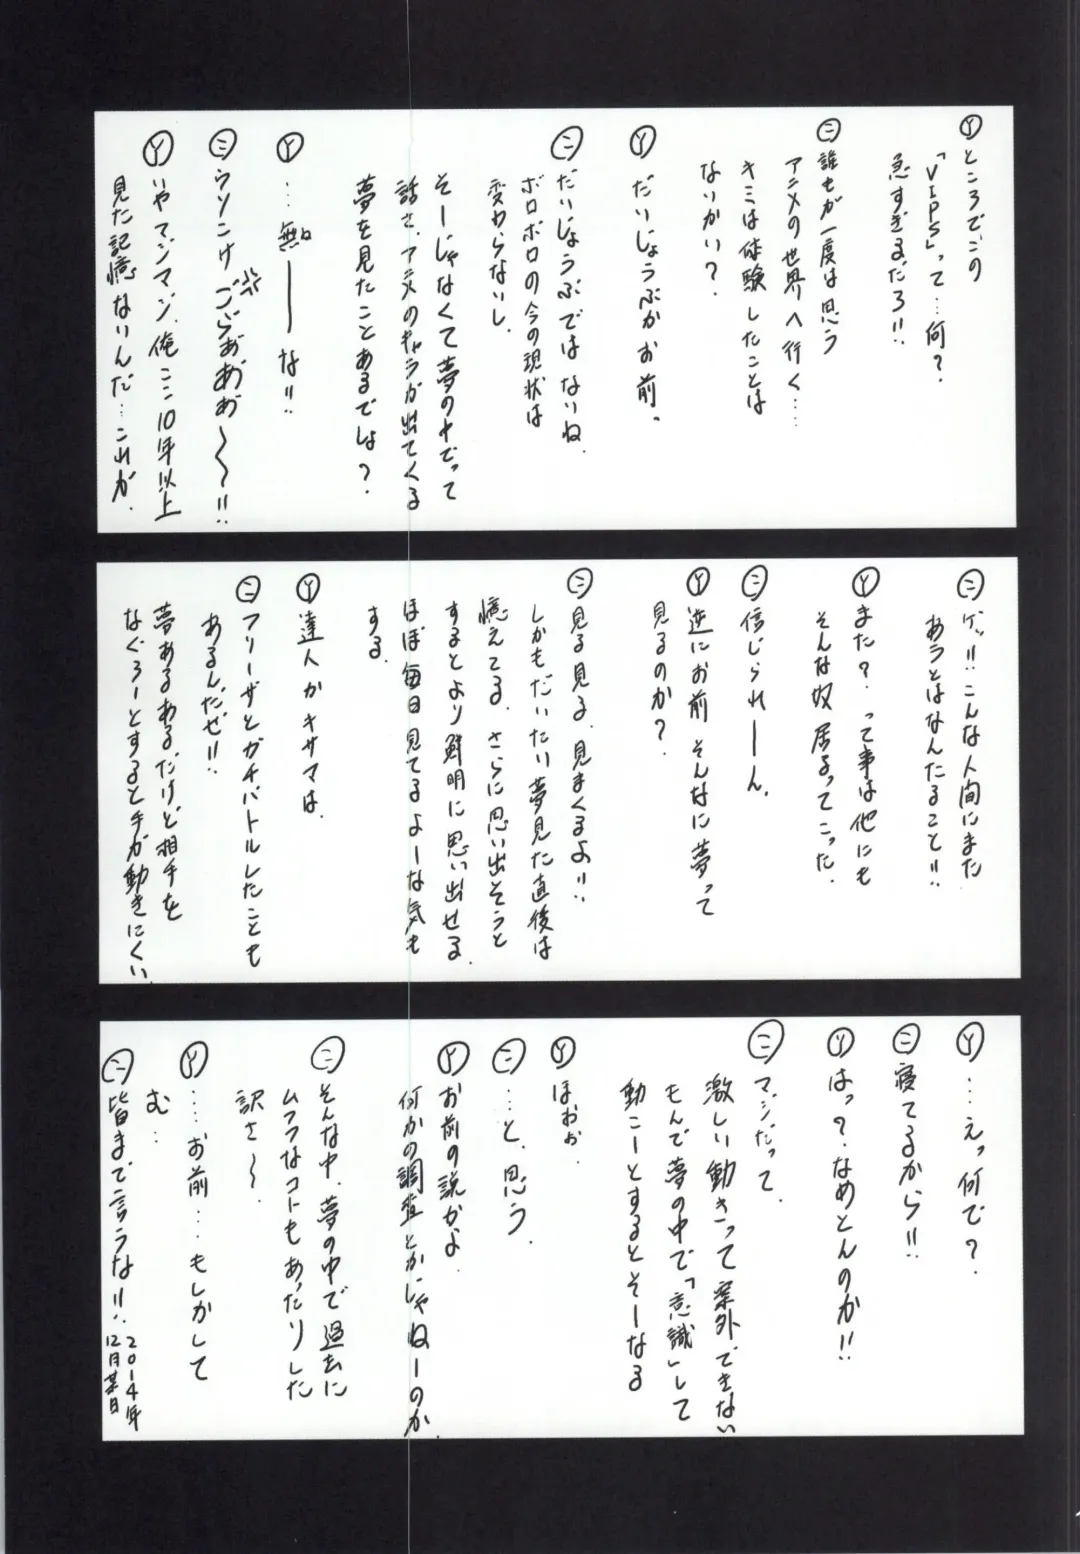 Ⓨ ところでこの
「VIPS」って…何?
急すぎるだろ!!
㊁ 誰もが一度は思う
アニメの世界へ行く……
キミは体験したことは
ないかい?
Ⓨ だいじょうぶかお前っ
㊁ だいじょうぶではないね
ボロボロの今の現状は
変わらないし、
そーじゃなくて夢の中でって
話さ、アニメのキャラが出てくる
夢を見たことあるでしょ?
Ⓨ …無ーーな!!
㊁ ウソこけ ごらぁぁあぁ〜〜!!
Ⓨ いやマジマジ、俺ここ10年以上
見た記憶ないんだ…これが、
㊁ ゲッ!!こんな人間にまた
あうとはなんたること!!
Ⓨ また?って事は他にも
そんな奴居るってこった、
㊁ 信じられーーん、
Ⓨ 逆にお前そんなに夢って
見るのか?
㊁ 見る見る、見まくるよ!!
しかもだいたい夢見た直後は
憶えてる、さらに思い出そうと
するとより鮮明に思い出せる、
ほぼ毎日見てるよーな気も
する、
Ⓨ 達人かキサマは、
㊁ フリーザとガチバトルしたことも
あるんだぜ!!
夢あるあるだけど相手を
なぐろーとすると手が動きにくい、
Ⓨ …えっ何で?
㊁ 寝てるから!!
Ⓨ はっ?なめとんのか!!
㊁ マジだって、
激しい動きって案外できない
もんで夢の中で「意識」して
動こーとするとそーなる
Ⓨ ほぉぉ
㊁ …と、思う、
Ⓨ お前の説かよ、
何かの調査とかじゃねーのか、
㊁ そんな中、夢の中で過去に
ムフフなコトもあったりした
訳さ〜、
Ⓨ ……お前…もしかして
む…
㊁ 皆まで言うな!!
2014年
12月某日